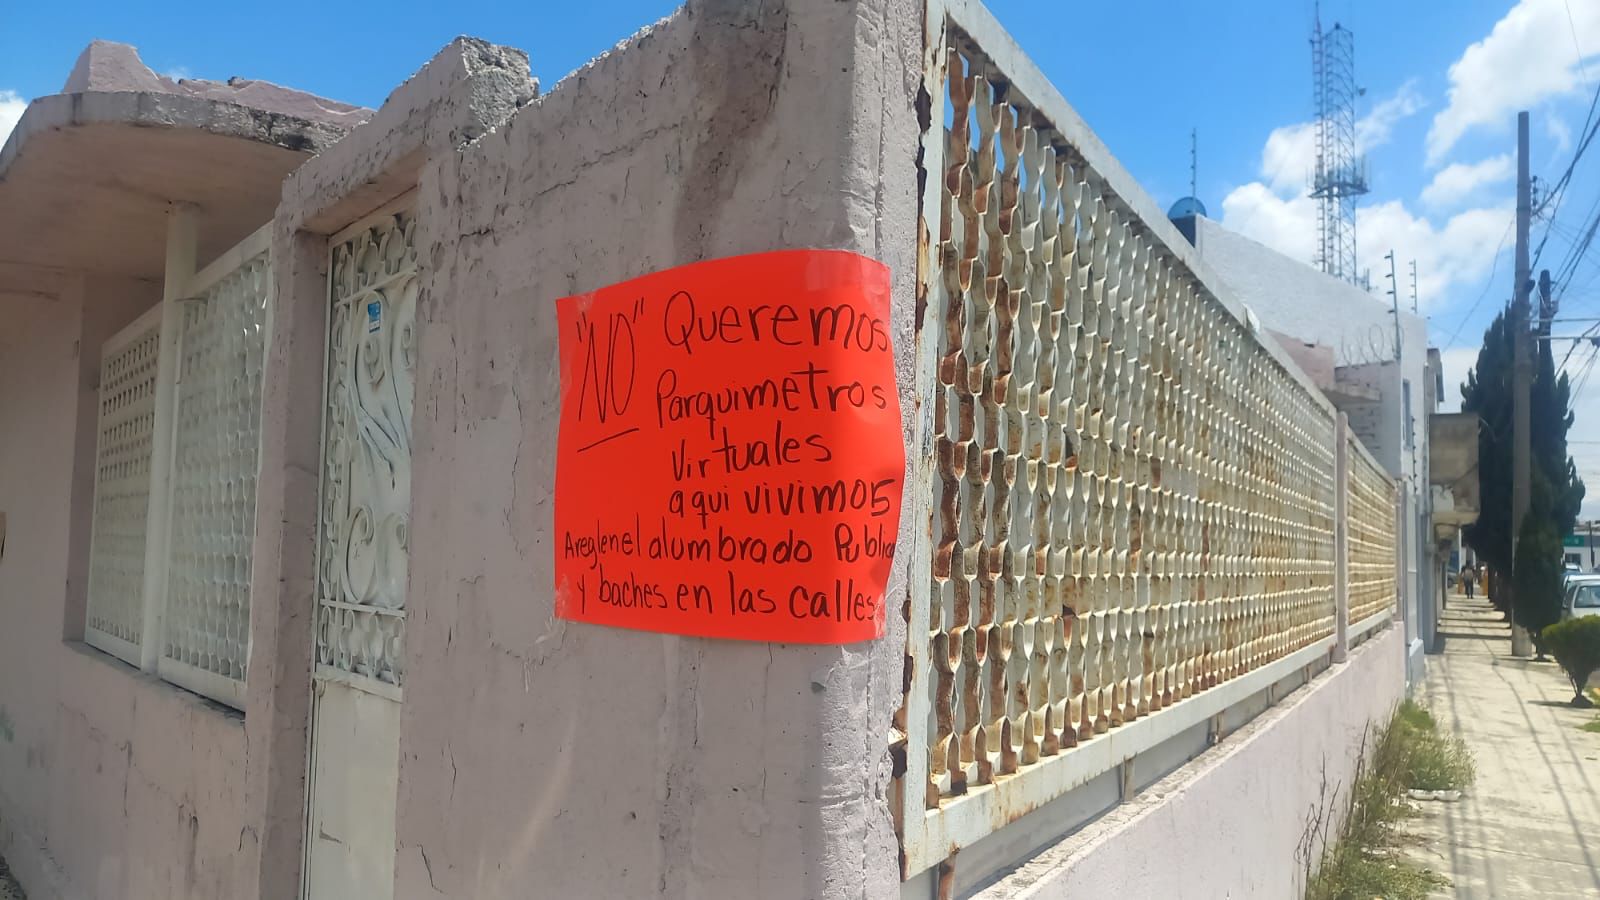 "NO" Queremos
Parquimetros
Virtuales
aqui vivimos
Areglen el alumbrado Public
y baches en las calles